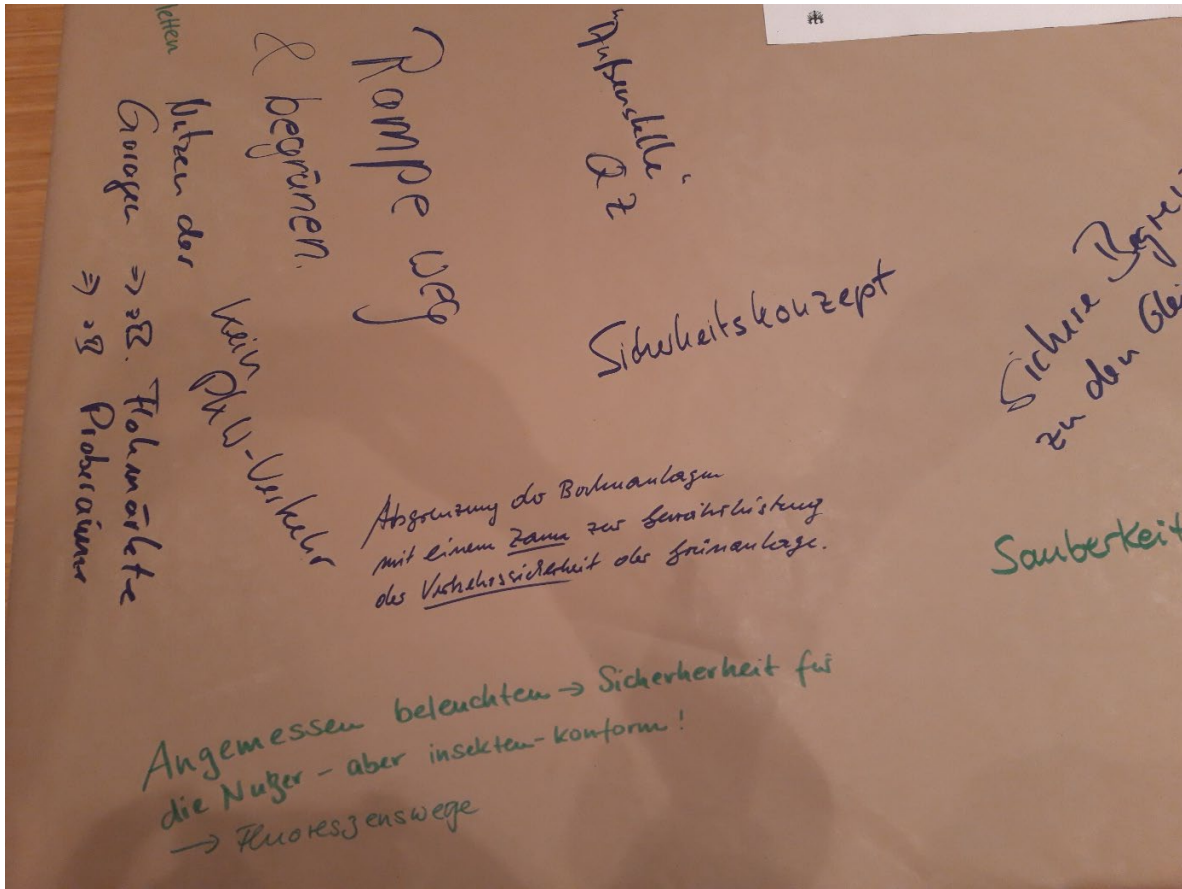 "Außenstelle"
QZ
Rampe weg
& begrünen.
Nutzen der
Garagen => z.B. Flohmärkte
=> z.B. Proberäume
kein
PKW-Verkehr
Sicherheitskonzept
Sichere
zu den
Abgrenzung der Bahnanlagen
mit einem Zaun zur Gewährleistung
der Verkehrssicherheit der Grünanlage.
Sauberkeit
Angemessen beleuchten → Sicherherheit für
die Nutzer - aber insekten-konform!
→ Fluoreszenswege